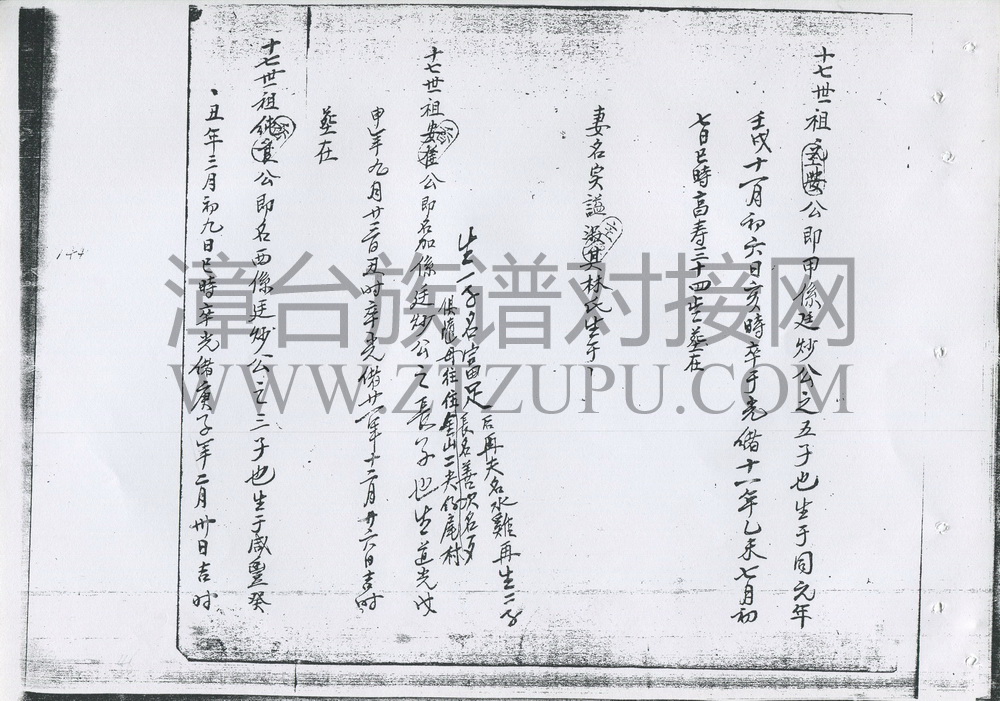 十七世祖 公即甲係廷炒公之五子也生于同元年
壬戌十一月初六日亥時卒于光緒十一年乙未七月初
七日巳時高寿三十四歲墓在
妻名実謚淑其林氏生于
生一子名富足
后再夫名水雞再生二子
長名善次名
俱隨母往住金山二夫仔尾村
十七世祖 公即名加係廷炒公之長子也生道光戊
申年九月廿二日丑时卒光緒廿 年十二月廿六日吉时
墓在
十七世祖純 公即名西係廷炒公之三子也生于咸豐癸
丑年三月初九日巳時卒光绪庚子年二月卅日吉时
144
漳台族谱对接网
WWW.ZTZUPU.COM